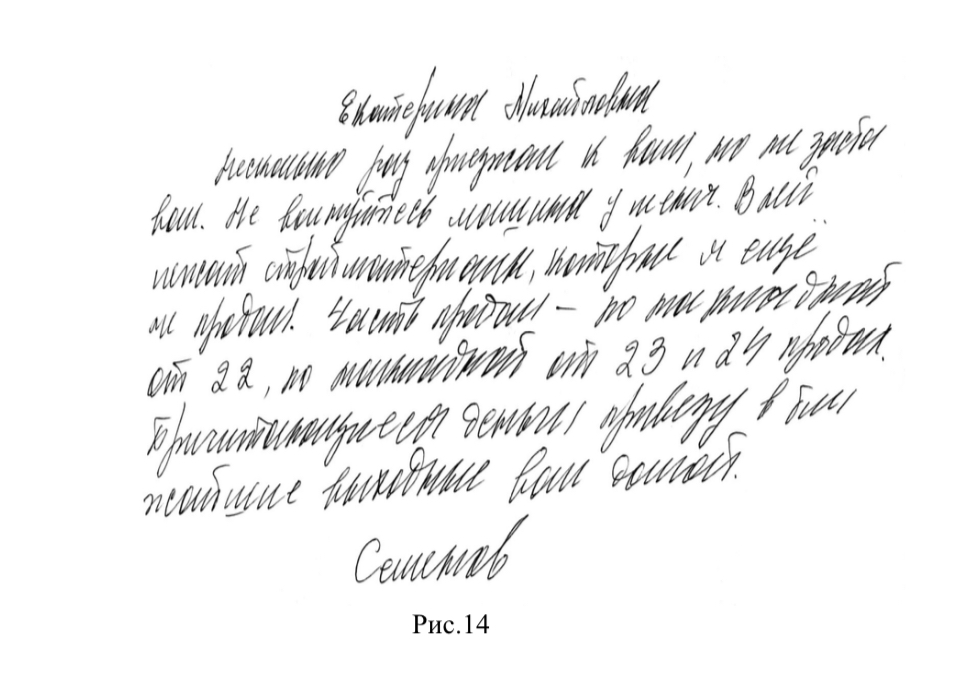 Екатерина Михайловна
Несколько раз приезжал к вам, но не заста
вал. Не волнуйтесь машина у меня. В ней
лежат стройматериалы, которые я ещё
не продал. Часть продал – по накладной
от 22, по накладной от 23 и 24 продам.
Причитающиеся деньги привезу в бли
жайшие выходные вам домой.
Семенов
Рис.14